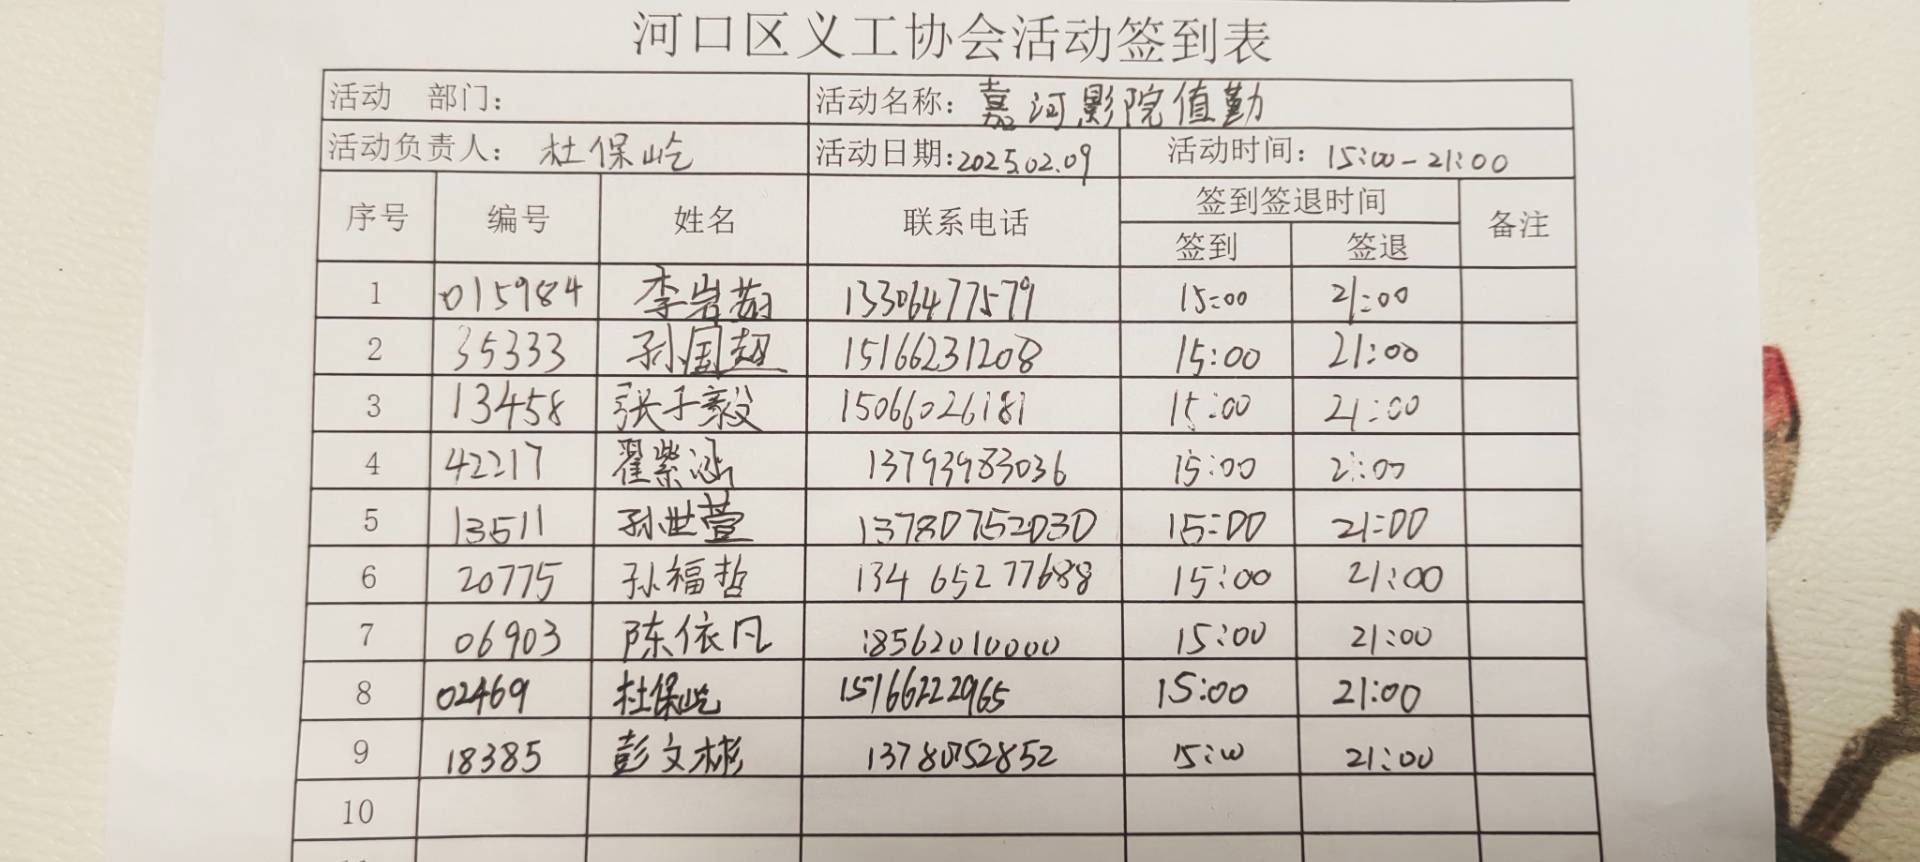 河口区义工协会活动签到表
活动 部门： 活动名称：嘉河影院值勤
活动负责人：杜保屹 活动日期：2025.02.09 活动时间：15:00-21:00
序号 编号 姓名 联系电话 签到签退时间 备注
签到 签退
1 015984 李岩茹 13306477579 15:00 21:00
2 35333 孙国超 15166231208 15:00 21:00
3 13458 张子毅 15066026181 15:00 21:00
4 42217 翟紫涵 13793983036 15:00 21:00
5 13511 孙世萱 13780752030 15:00 21:00
6 20775 孙福哲 13465277688 15:00 21:00
7 06903 陈依凡 18562010000 15:00 21:00
8 02469 杜保屹 15166222965 15:00 21:00
9 18385 彭文彬 13780752852 15:00 21:00
10